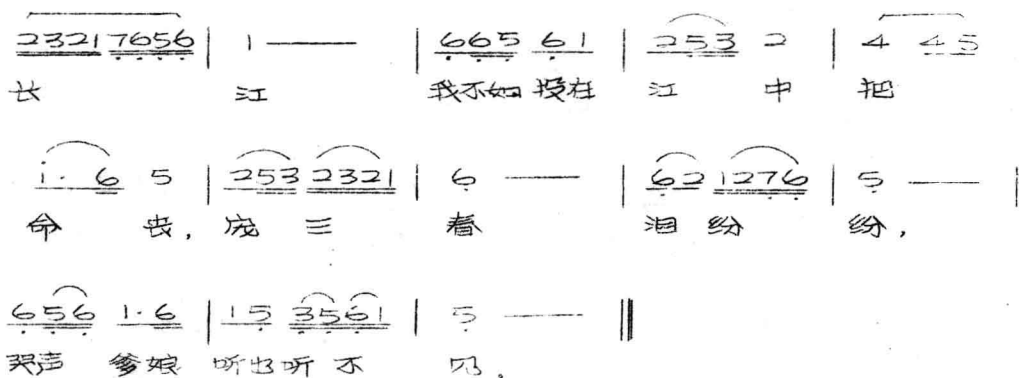 2321 7656 | 1 —— | 665 61 | 253 2 | 4 45
长 江 我不如投在 江 中 把
i· 6 5 | 253 2321 | 6 —— | 62 1276 | 5 —— |
命 丧, 庞 三 春 泪 纷 纷,
656 1·6 | 15 3561 | 5 —— ‖
哭声 爹娘 听也听 不 见。